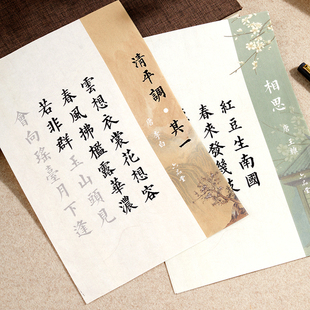 清平調·其一
唐 李白
雲想衣裳花想容
春風拂檻露華濃
若非群玉山頭見
會向瑤臺月下逢
相思
唐 王維
紅豆生南國
春來發幾枝